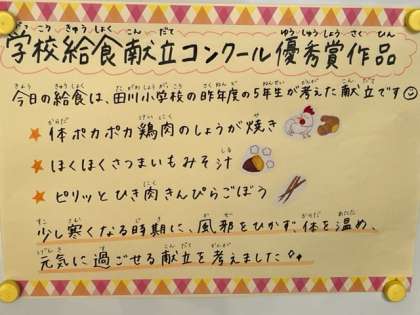 学校給食献立コンクール優秀賞作品
今日の給食は、田川小学校の昨年度の5年生が考えた献立です
★体ポカポカ鶏肉のしょうが焼き
★ほくほくさつまいもみそ汁
★ピリッとひき肉きんぴらごぼう
少し寒くなる時期に、風邪をひかず、体を温め、
元気に過ごせる献立を考えました